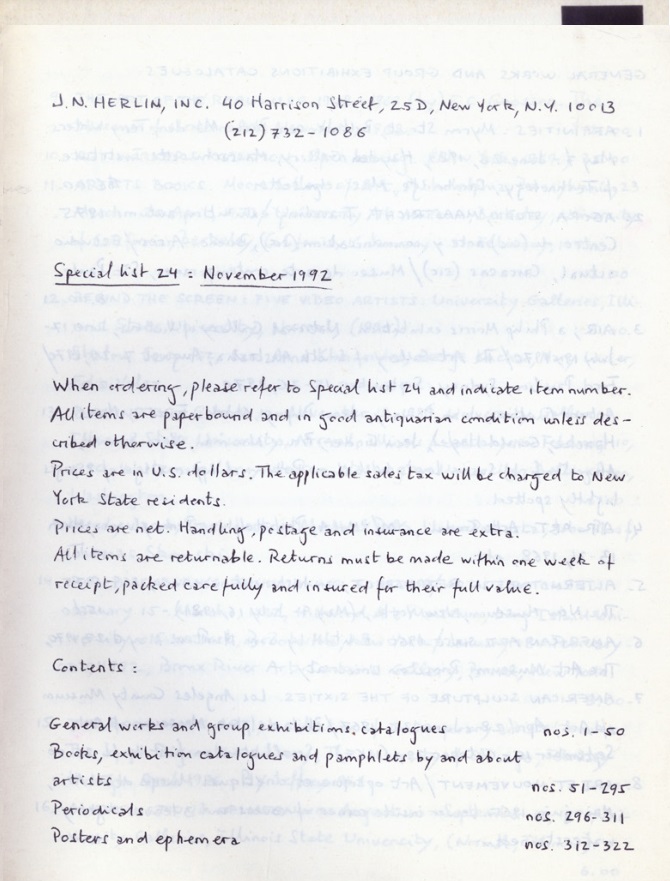 J.N. HERLIN, INC. 40 Harrison Street, 25D, New York, N.Y. 10013
(212) 732-1086
Special list 24 : November 1992
When ordering, please refer to Special list 24 and indicate item number.
All items are paperbound and in good antiquarian condition unless des-
cribed otherwise.
Prices are in U.S. dollars. The applicable sales tax will be charged to New
York State residents.
Prices are net. Handling, postage and insurance are extra.
All items are returnable. Returns must be made within one week of
receipt, packed carefully and insured for their full value.
Contents :
General works and group exhibitions catalogues nos. 1-50
Books, exhibition catalogues and pamphlets by and about
artists nos. 51-295
Periodicals nos. 296-311
Posters and ephemera nos. 312-322